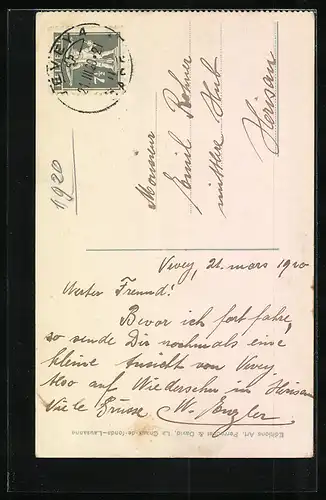 VEVEY
7½
1920
Monsieur
Emil Rohner
mittlere Hub
Herisau
Vevey, 21. mars 1920
Werter Freund!
Bevor ich fort fahre,
so sende Dir nochmals eine
kleine Ansicht von Vevey.
Also auf Wiedersehn in Herisau
Viele Grüsse W. Enzler
Editions Art. Perrochet & David, La Chaux-de-fonds-Lausanne